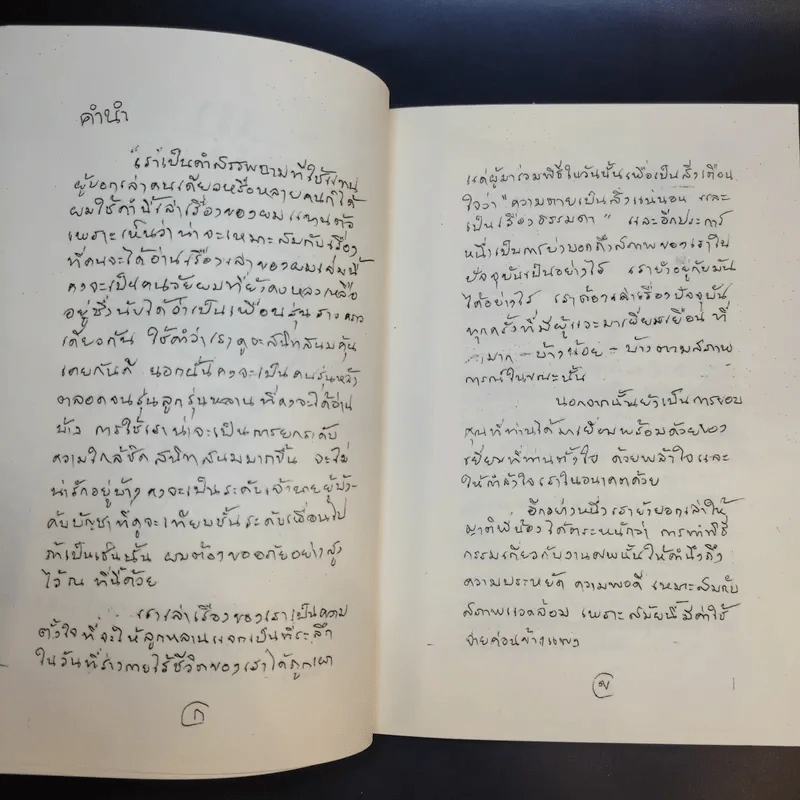 คำนำ
"เรา"เป็นคำสรรพนามที่ใช้แทน
ผู้บอกเล่าคนเดียวหรือหลายคนก็ได้
ผมใช้คำนี้เล่าเรื่องของผมแทนตัว
เพราะเห็นว่าน่าจะเหมาะสมกับเรื่อง
ที่คนจะได้อ่านเรื่องเล่าของผมเล่มนี้
คงจะเป็นคนวัยผมที่ยังคงหลงเหลือ
อยู่ซึ่งนับได้ว่าเป็นเพื่อนรุ่นราวคราว
เดียวกัน ใช้คำว่าเราดูจะสนิทสนมคุ้น
เคยกันดี นอกนั้นคงจะเป็นคนรุ่นหลัง
ตลอดจนรุ่นลูกรุ่นหลานที่คงจะได้อ่าน
บ้าง การใช้เราน่าจะเป็นการยกระดับ
ความใกล้ชิดสนิทสนมมากขึ้น จะไม่
น่ารักอยู่บ้างคงจะเป็นระดับเจ้านายผู้บัง-
คับบัญชาที่ดูจะเทียมชั้นระดับเพื่อนไป
ถ้าเป็นเช่นนั้น ผมต้องขออภัยอย่างสูง
ไว้ณ ที่นี้ด้วย
เราเล่าเรื่องของเราเป็นความ
ตั้งใจที่จะให้ลูกหลานแจกเป็นที่ระลึก
ในวันที่ร่างกายไร้ชีวิตของเราได้ถูกเผา
ก
แด่ผู้มาร่วมพิธีในวันนั้นเพื่อเป็นสิ่งเตือน
ใจว่า "ความตายเป็นสิ่งแน่นอน และ
เป็นเรื่องธรรมดา" และอีกประการ
หนึ่งเป็นการบ่งบอกถึงสภาพของเราใน
ปัจจุบันเป็นอย่างไร เรายังอยู่กับมัน
ได้อย่างไร เราต้องเล่าเรื่องปัจจุบัน
ทุกครั้งที่มีผู้แวะมาเยี่ยมเยือน ที่
มาก - บ้างน้อย - บ้างตามสภาพ
การณ์ในขณะนั้น
นอกจากนั้นยังเป็นการขอบ
คุณที่ท่านได้มาเยี่ยมพร้อมด้วยของ
เยี่ยมที่ท่านตั้งใจ ด้วยพลังใจและ
ให้กำลังใจเราในอนาคตด้วย
อีกอย่างหนึ่งเรายังบอกเล่าให้
ญาติพี่น้องได้ตระหนักว่า การทำพิธี
กรรมเกี่ยวกับงานศพนั้นให้คำนึงถึง
ความประหยัด ความพอดี เหมาะสมกับ
สภาพแวดล้อม เพราะสมัยนี้มีค่าใช้
จ่ายค่อนข้างแพง
ข